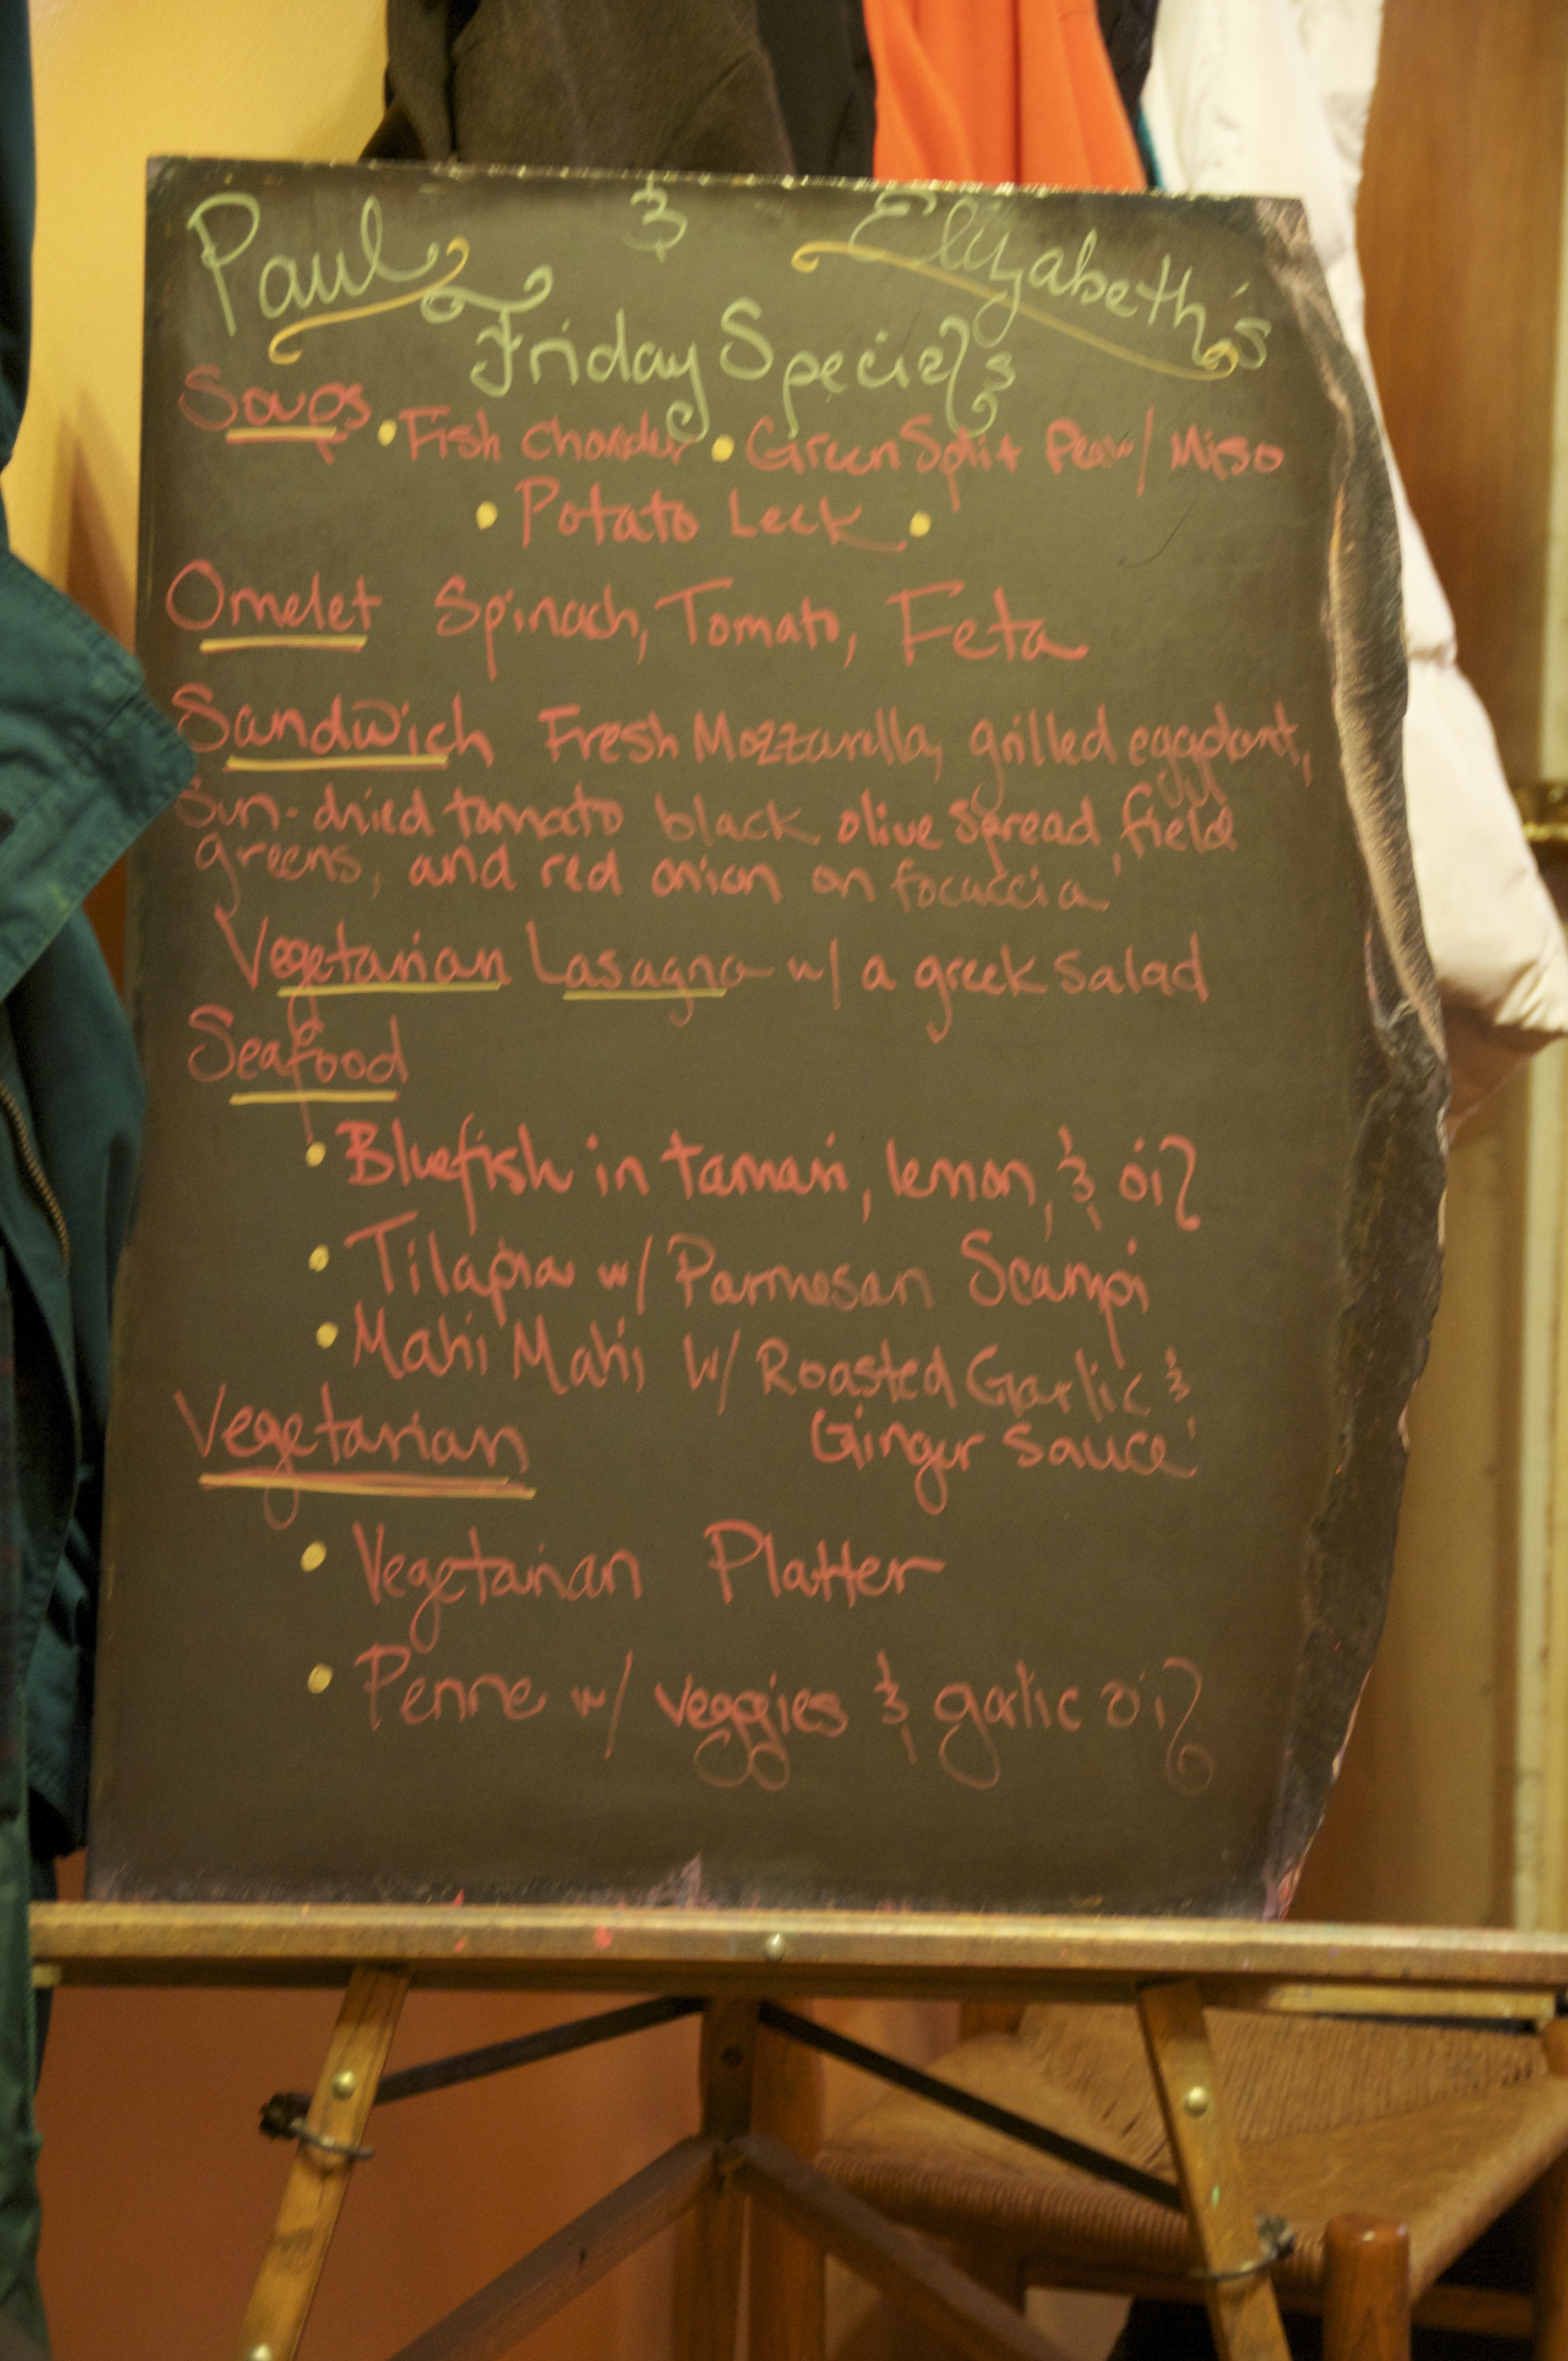 Paul & Elizabeth's
Friday Specials
Soups • Fish Chowder • Green Split Pea w/ Miso
• Potato Leek •
Omelet Spinach, Tomato, Feta
Sandwich Fresh Mozzarella, grilled eggplant,
Sun-dried tomato black olive spread, field
greens, and red onion on focaccia
Vegetarian Lasagna w/ a greek salad
Seafood
• Bluefish in tamari, lemon, & oil
• Tilapia w/ Parmesan Scampi
• Mahi Mahi w/ Roasted Garlic &
Ginger Sauce
Vegetarian
• Vegetarian Platter
• Penne w/ veggies & garlic oil